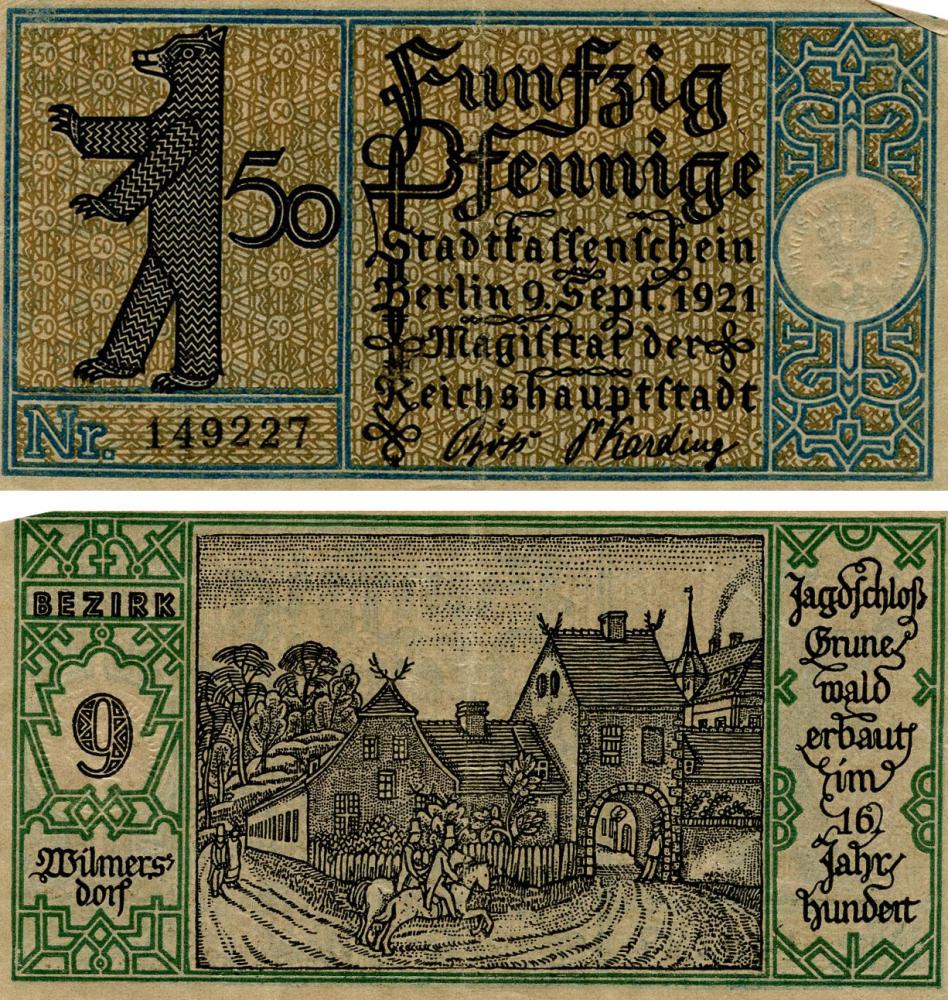 50
Fünfzig
Pfennige
Stadtkaſſenſchein
Berlin 9. Sept. 1921
Magiſtrat der
Reichshauptſtadt
Nr. 149227
BEZIRK
9
Wilmers⸗
dorf
Jagdſchloß
Grune⸗
wald
erbaut
im
16.
Jahr⸗
hundert